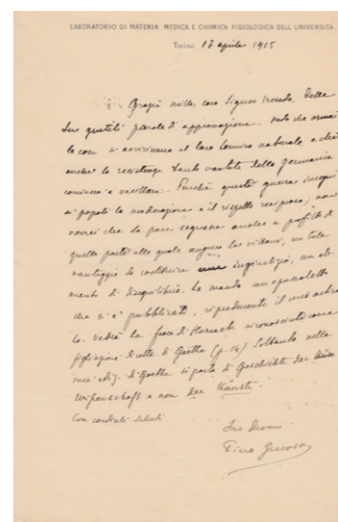 LABORATORIO DI MATERIA MEDICA E CHIMICA FISIOLOGICA DELL'UNIVERSITÀ
Torino 17 aprile 1915
Grazie mille caro Signor, delle
Sue gentili parole di approvazione. Vedo che ormai
le cose si avvicinano al loro termine naturale e che
anche la resistenza tanto vantata della Germania
comincia a vacillare. Purché questa guerra insegni
ai popoli la moderazione e il rispetto reciproco, non
vorrei che la pace segnasse anche a profitto di
quella parte alla quale auguro la vittoria, un tale
vantaggio da costituire una ingiustizia, un ele-
mento di disequilibrio. Le mando un opuscoletto
che si è pubblicato, riproducente il mio artico
lo. Vedrà la frase di riconosciuta come
figliazione diretta di Goethe (p. 14) Soltanto nella
ediz. di Goethe si parla di Geschichte der
Wissenschaft e non der Künste.
Con cordiali saluti
Suo devmo
Piero Giacosa